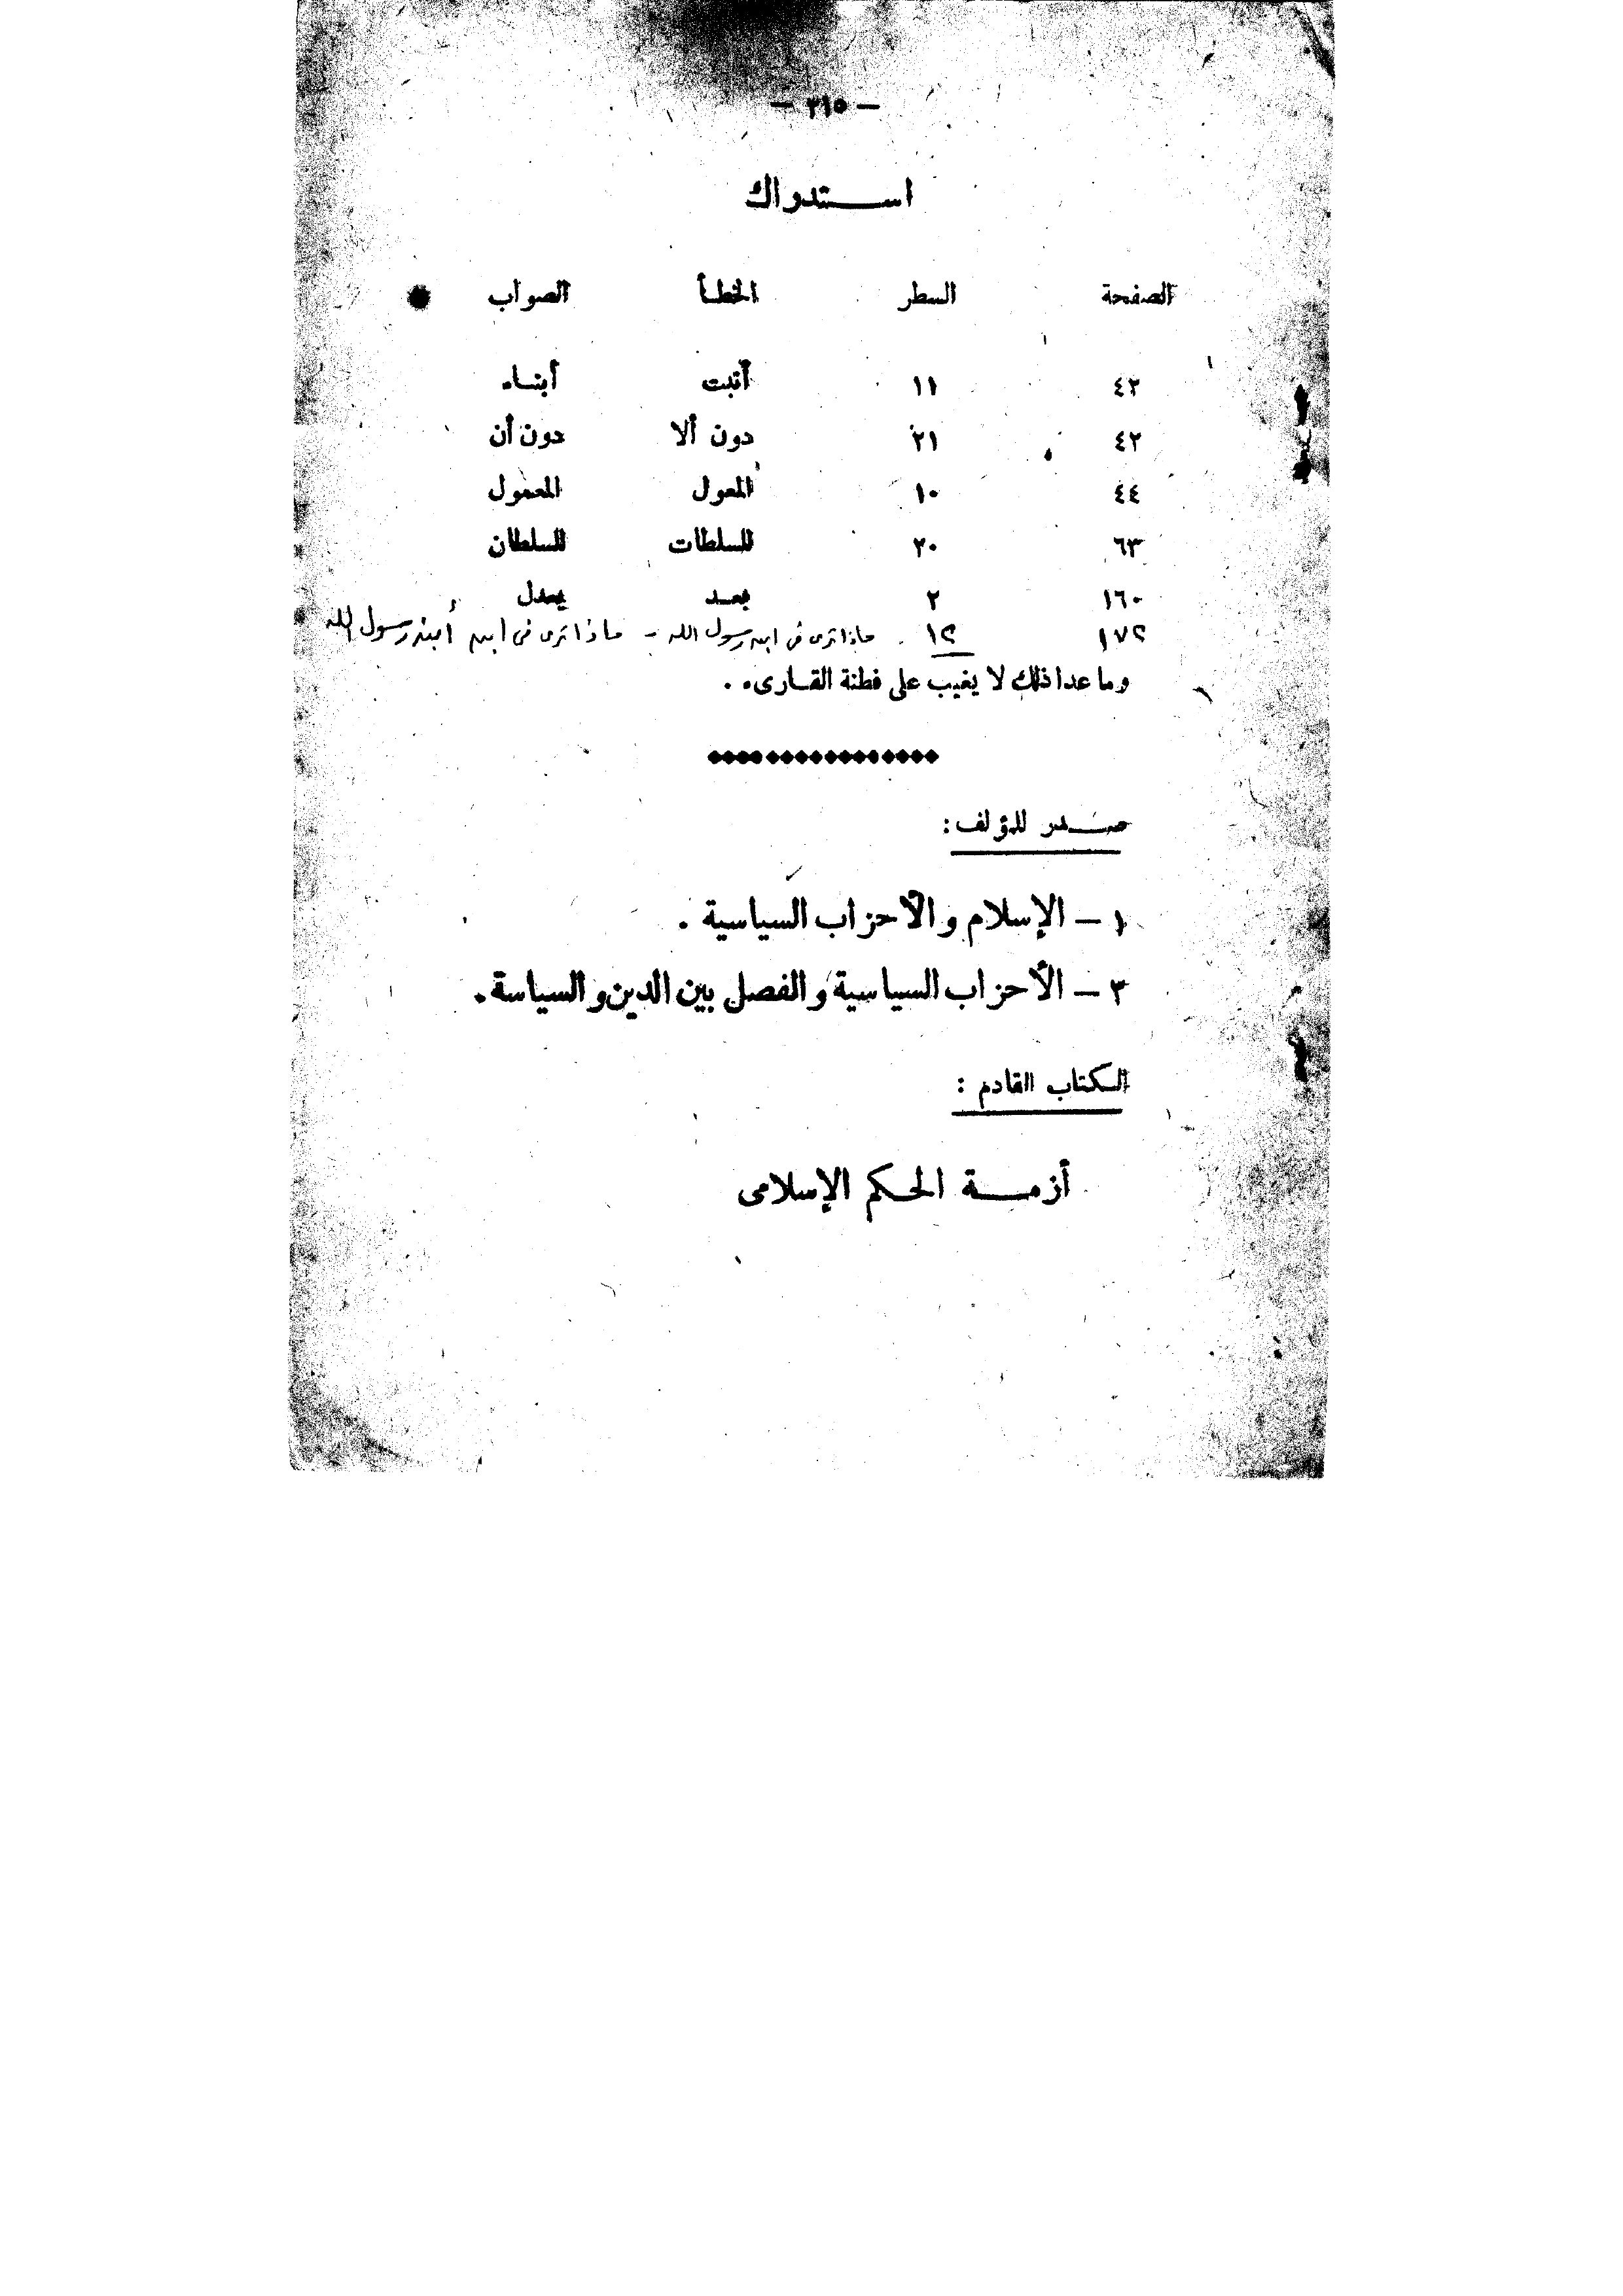 — ٣١٥ —
استدراك
الصفحة السطر الخطأ الصواب
٤٢ ١١ أثبت أبناء
٤٢ ٢١ دون ألا دون أن
٤٤ ١٠ المعول المعمول
٦٣ ٢٠ للسلطات للسلطان
١٦٠ ٢ بعد يعدل
١٧٢ ١٢ ماذا ترى فى ابن رسول الله - ماذا ترى فى ابن ابنة رسول الله
وما عدا ذلك لا يغيب على فطنة القارىء .
صدر للمؤلف :
١ — الإسلام والأحزاب السياسية .
٣ — الأحزاب السياسية والفصل بين الدين والسياسة .
الكتاب القادم :
أزمة الحكم الإسلامى